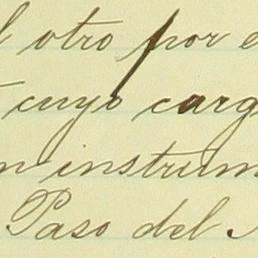 l otro por e
cuyo carg
n instrum
Paso del